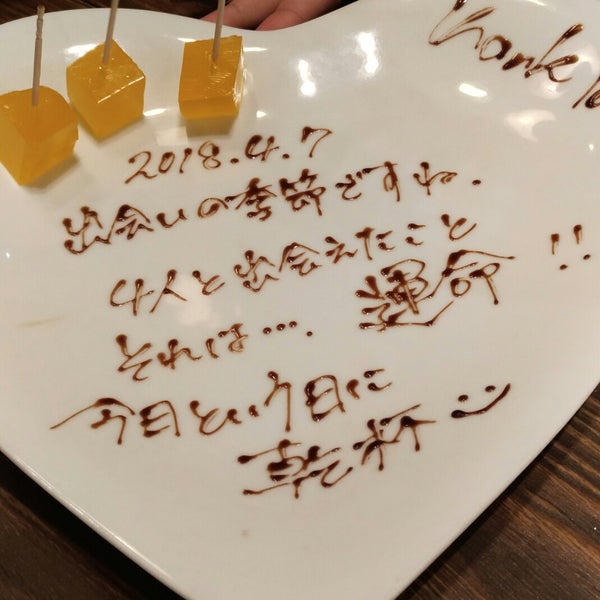 Thank
2018.4.7
出会いの季節ですね.
4人と出会えたこと
それは…. 運命!!
今日という日に
乾杯